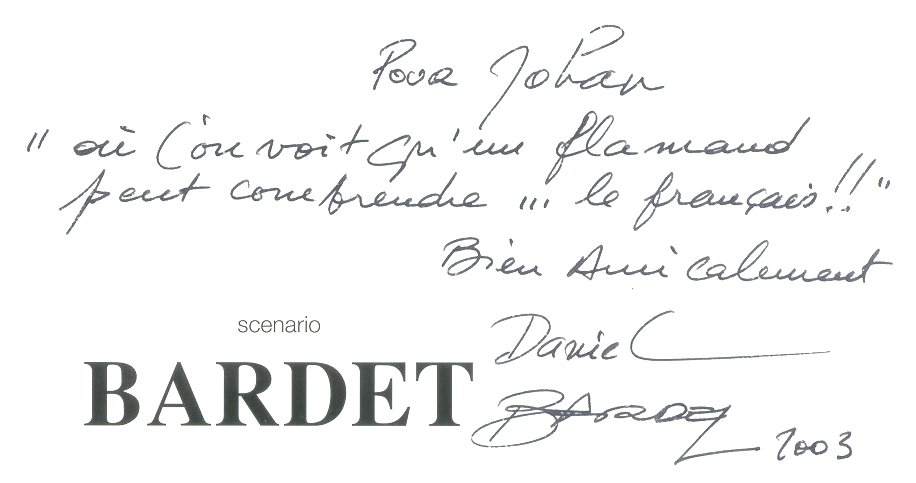 Pour Johan
" où l'on voit qu'un flamand
peut comprendre ... le français!! "
Bien Amicalement
scenario
Daniel
BARDET
BARDET
2003